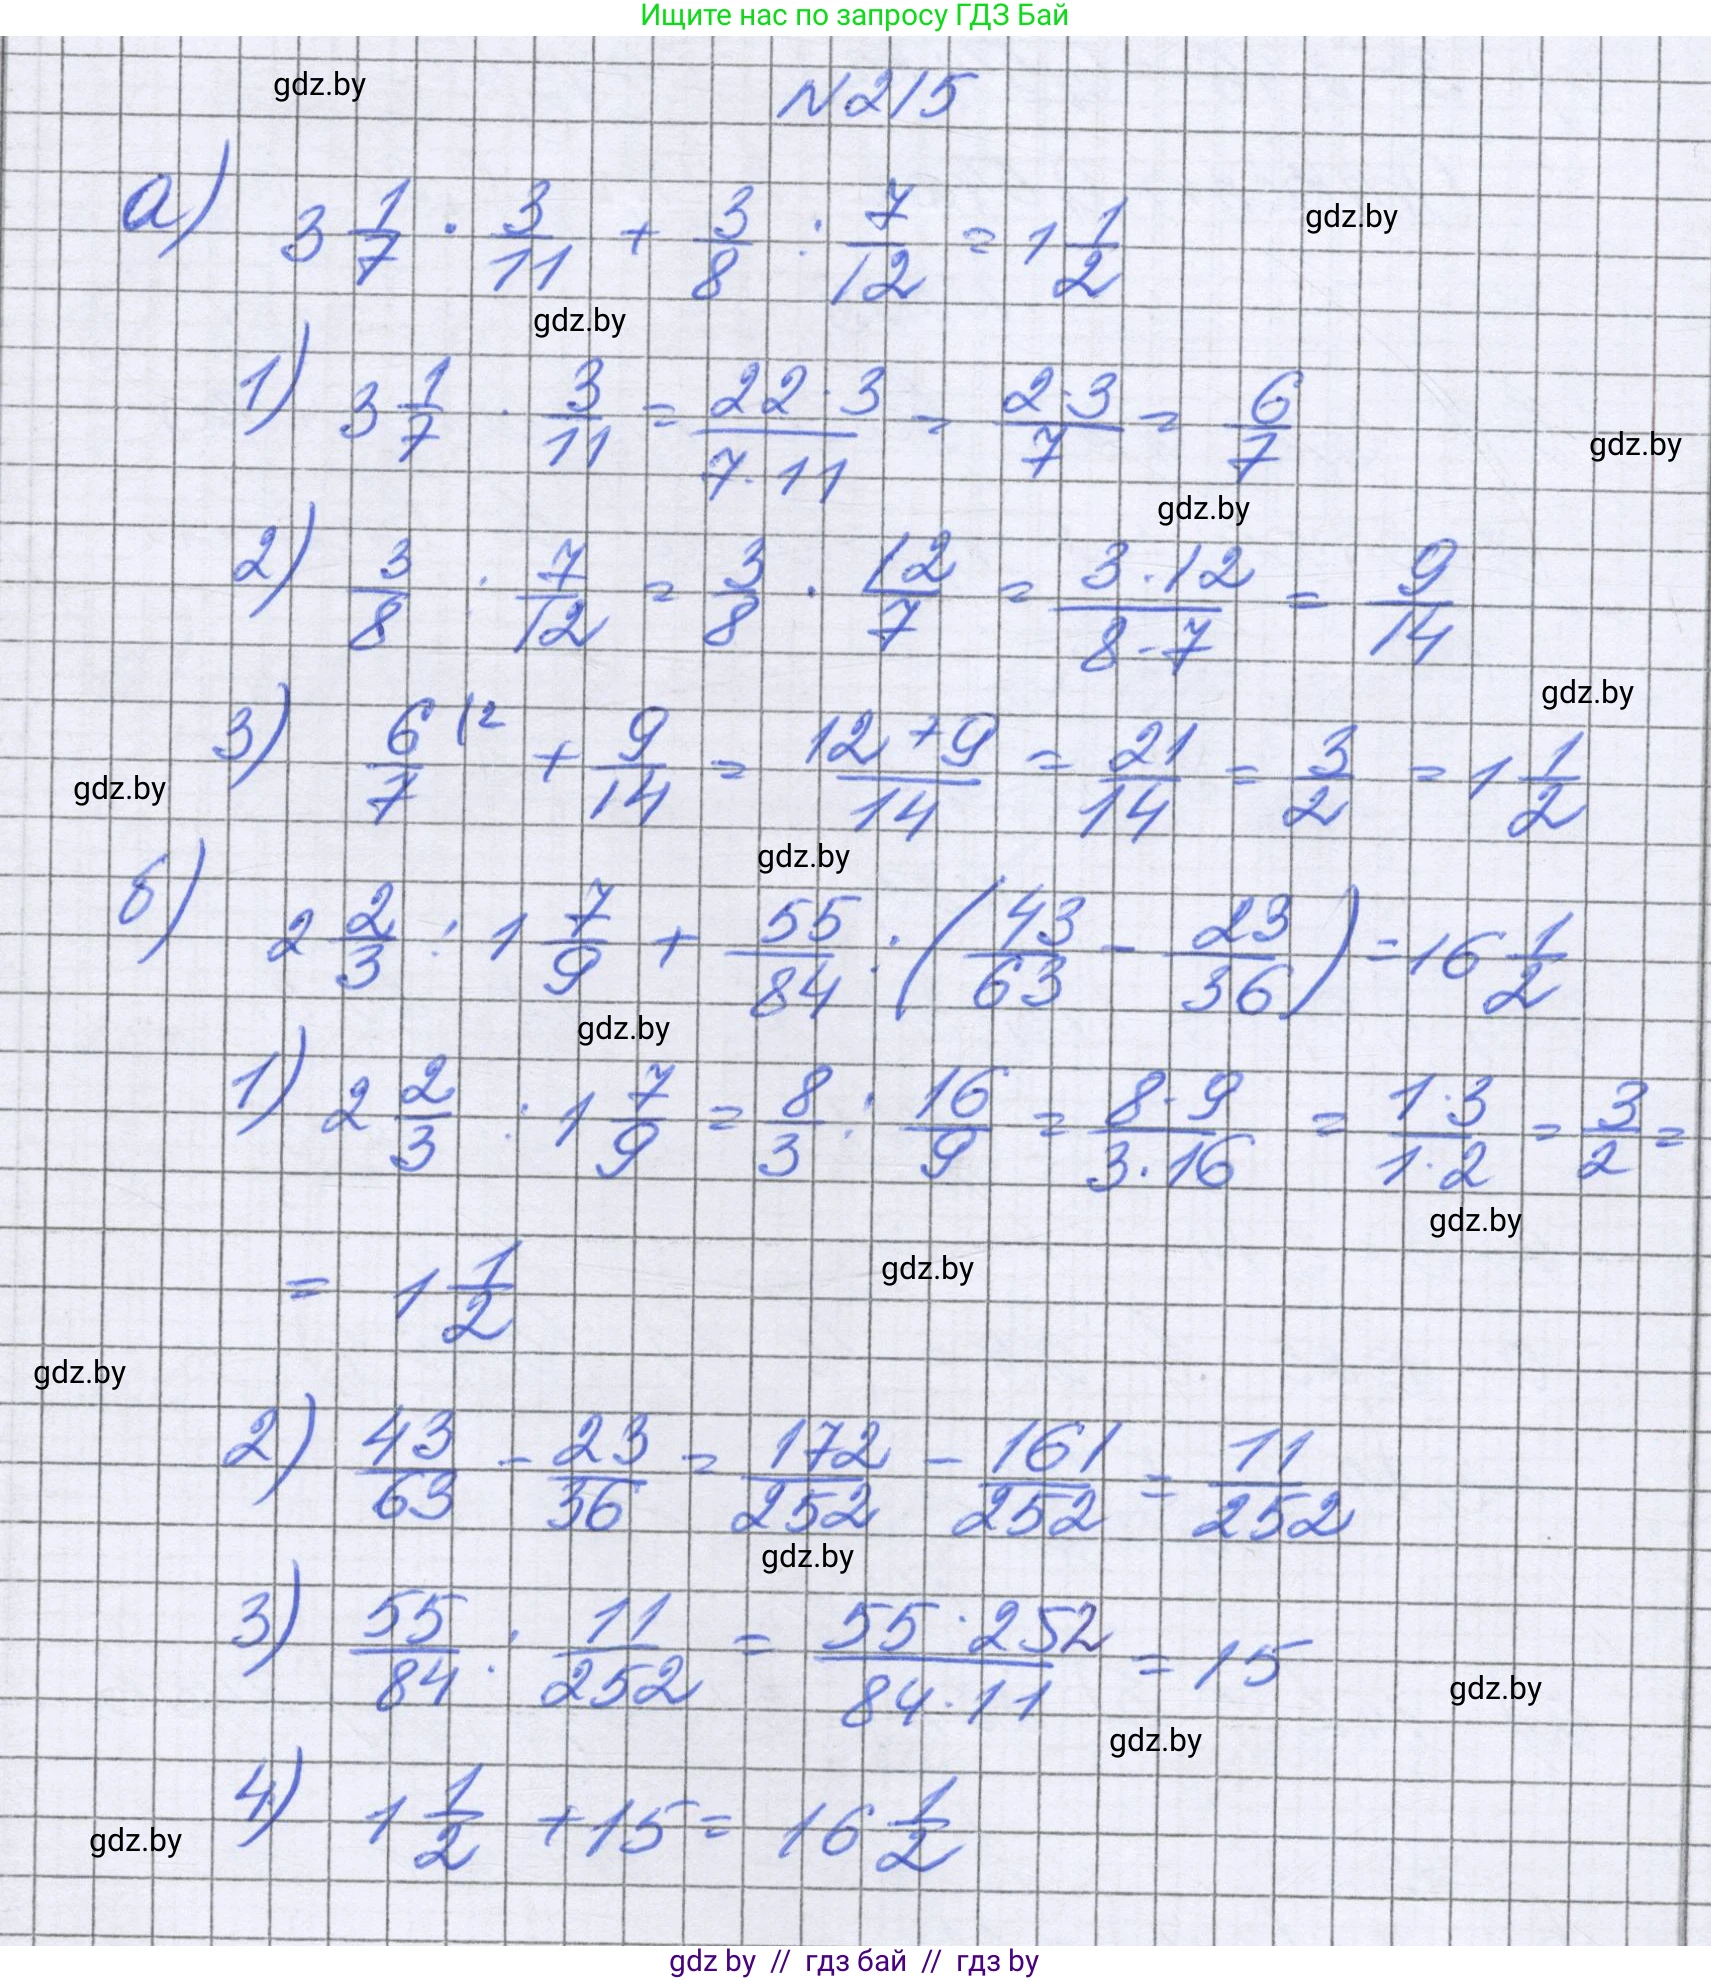 Ищите нас по запросу ГДЗ Бай
gdz.by
N215
а) 3 1/7 · 3/11 + 3/8 : 7/12 = 1 1/2
gdz.by
gdz.by
1) 3 1/7 · 3/11 = 22·3/7·11 = 2·3/7 = 6/7
gdz.by
gdz.by
2) 3/8 : 7/12 = 3/8 · 12/7 = 3·12/8·7 = 9/14
gdz.by
3) 6/7 (2 + 9/14 = 12+9/14 = 21/14 = 3/2 = 1 1/2
gdz.by
gdz.by
б) 2 2/3 : 1 7/9 + 55/84 : (43/63 - 23/36) = 16 1/2
gdz.by
1) 2 2/3 : 1 7/9 = 8/3 : 16/9 = 8·9/3·16 = 1·3/1·2 = 3/2 =
gdz.by
= 1 1/2
gdz.by
gdz.by
2) 43/63 - 23/36 = 172/252 - 161/252 = 11/252
gdz.by
3) 55/84 : 11/252 = 55·252/84·11 = 15
gdz.by
gdz.by
4) 1 1/2 + 15 = 16 1/2
gdz.by
gdz by // гдз бай // гдз by